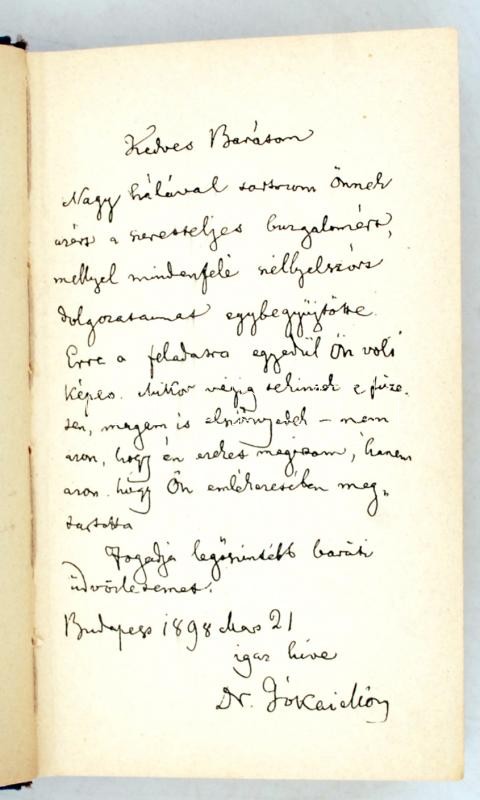 Kedves Barátom
Nagy hálával tartozom Önnek
azért a szeretteljes buzgalomért,
mellyel mindenfelé széllyelszórt
dolgozataimat egybegyűjtötte.
Erre a feladatra egyedül Ön volt
képes. Mikor végig tekintek e füze-
ten, magam is elszörnyedek – nem
azon, hogy én ezeket megirtam, hanem
azon hogy Ön emlékezetében meg„
tartotta
Fogadja legőszintébb baráti
üdvözletemet.
Budapest 1898 Mar 21
igaz híve
Dr. Jókai Mór